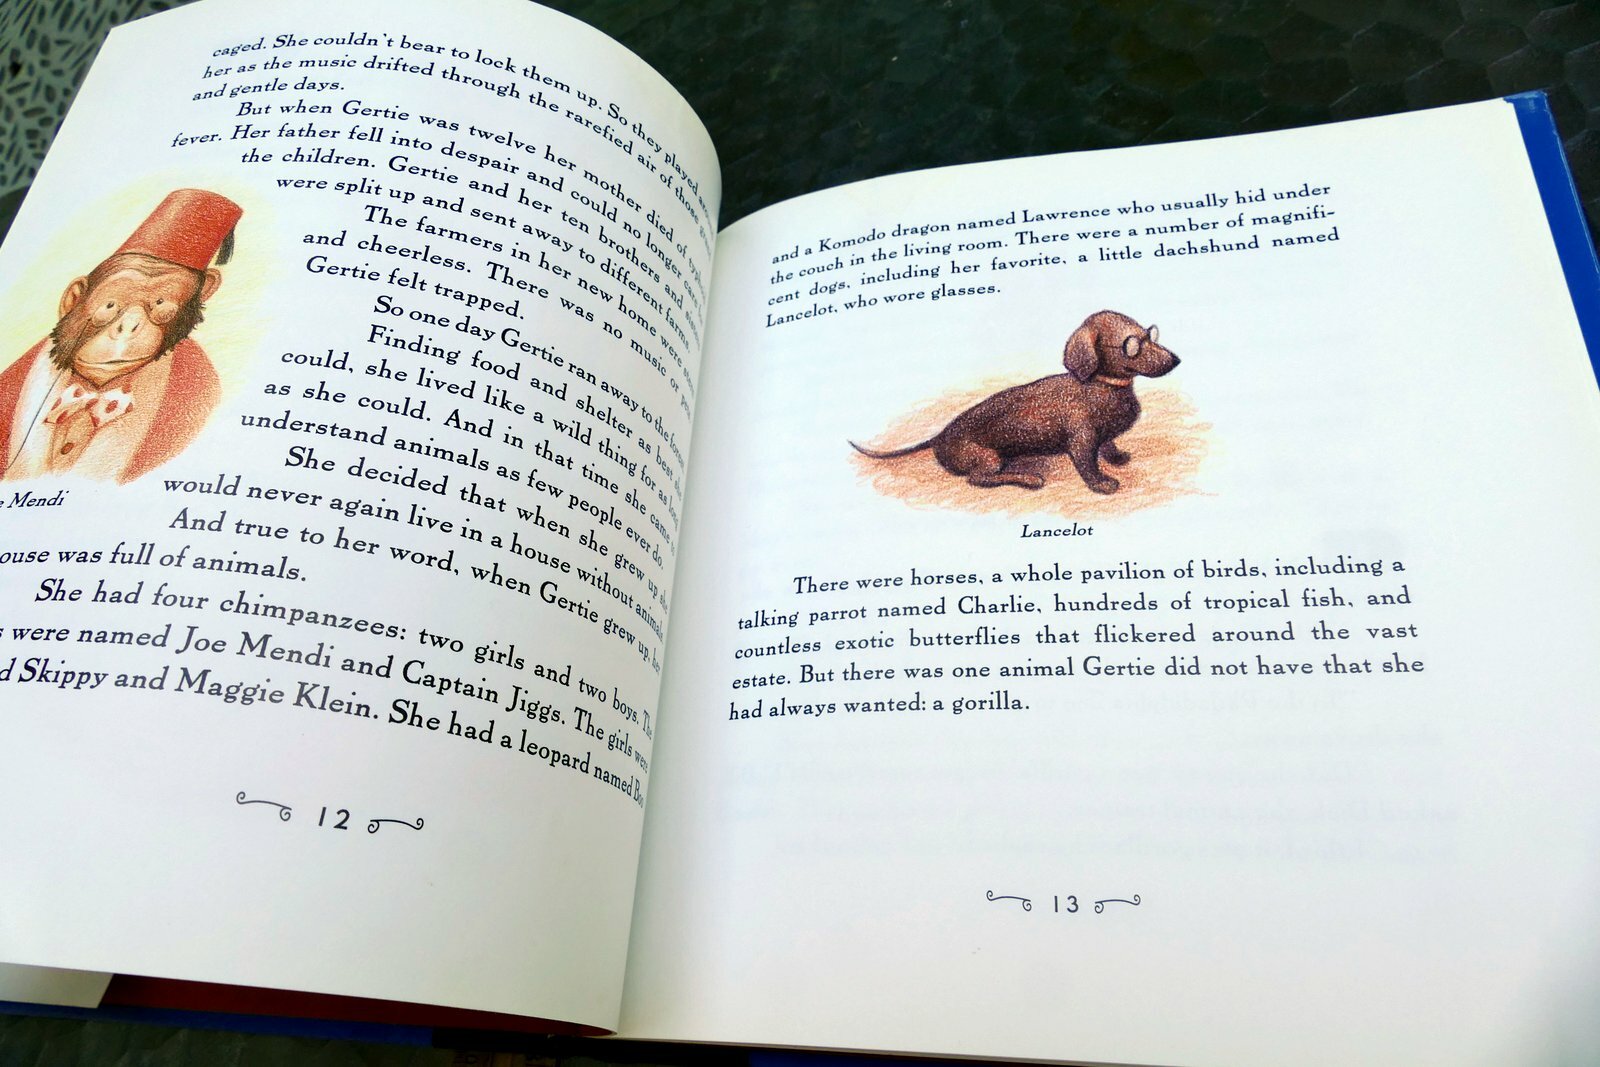 caged. She couldn't bear to lock them up. So they played
her as the music drifted through the rarefied air of those
and gentle days.
But when Gertie was twelve her mother died of
fever. Her father fell into despair and could no longer care
the children. Gertie and her ten brothers and sisters
were split up and sent away to different farms.
The farmers in her new home were
and cheerless. There was no music or
Gertie felt trapped.
So one day Gertie ran away to the forest
Finding food and shelter as best she
could, she lived like a wild thing for as long
as she could. And in that time she came to
understand animals as few people ever do.
She decided that when she grew up she
would never again live in a house without animals.
And true to her word, when Gertie grew up, her
ouse was full of animals.
She had four chimpanzees: two girls and two boys. The
s were named Joe Mendi and Captain Jiggs. The girls were
d Skippy and Maggie Klein. She had a leopard named Boo
e Mendi
12
and a Komodo dragon named Lawrence who usually hid under
the couch in the living room. There were a number of magnifi-
cent dogs, including her favorite, a little dachshund named
Lancelot, who wore glasses.
Lancelot
There were horses, a whole pavilion of birds, including a
talking parrot named Charlie, hundreds of tropical fish, and
countless exotic butterflies that flickered around the vast
estate. But there was one animal Gertie did not have that she
had always wanted: a gorilla.
13